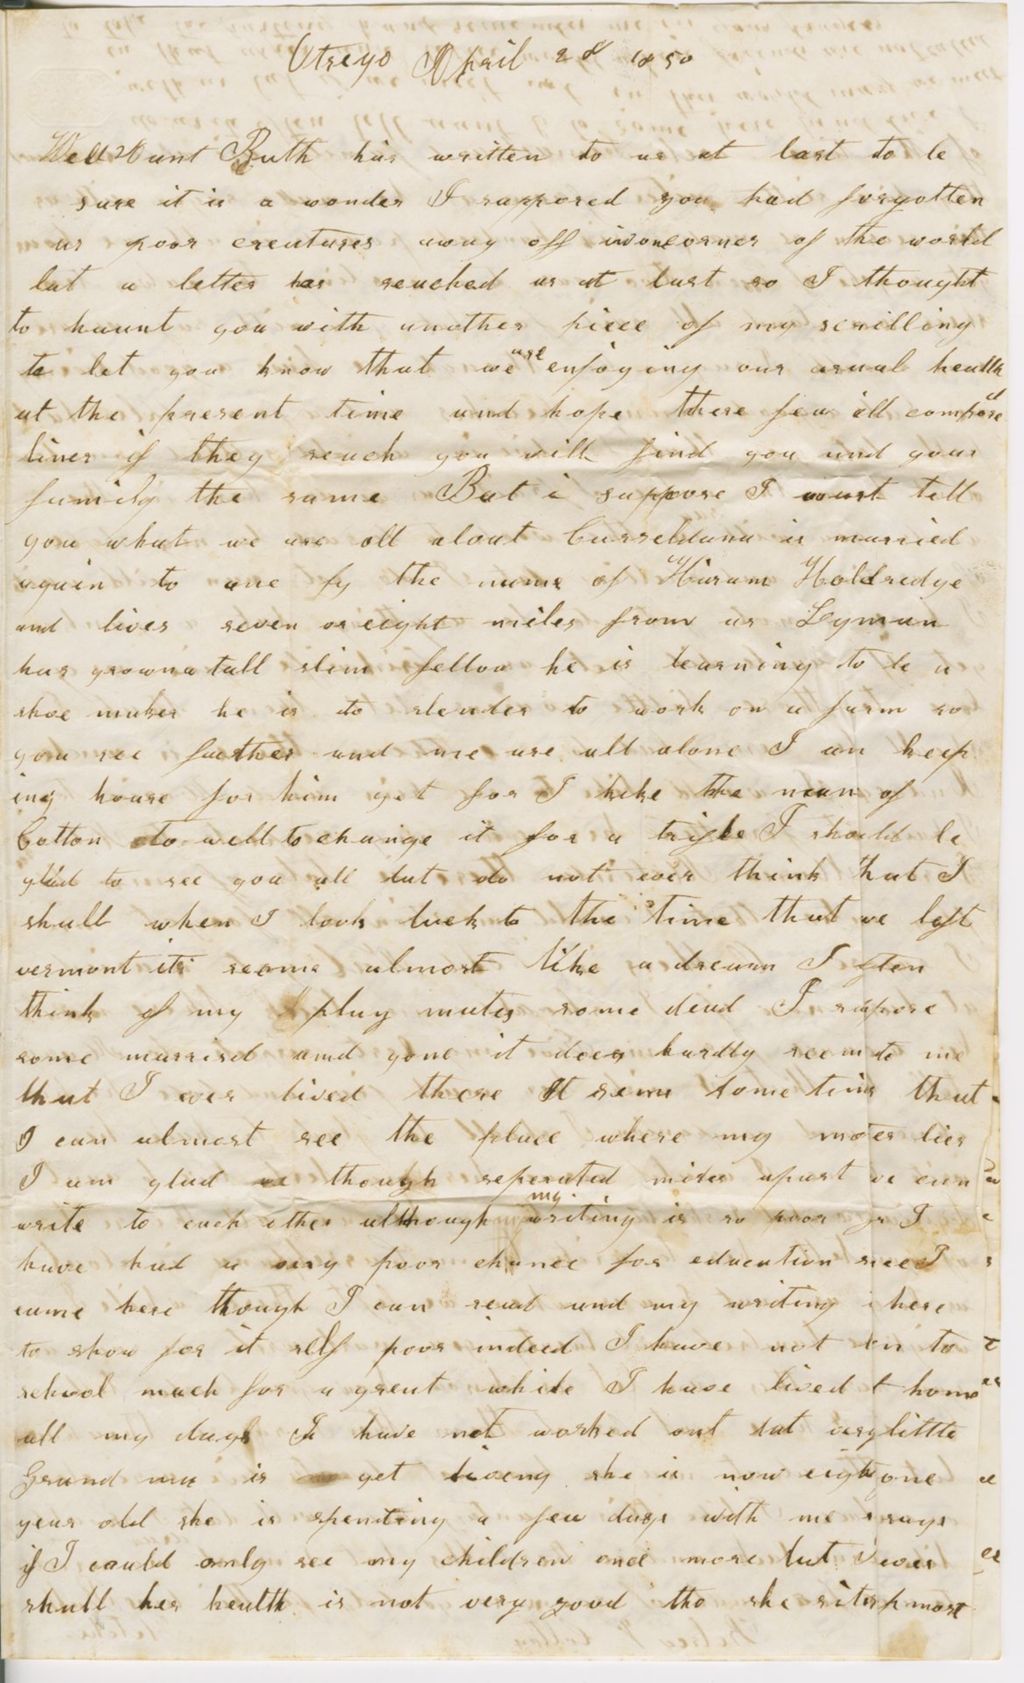 Otsego April 28 1850
Well Aunt Ruth has written to us at last to be
sure it is a wonder I supposed you had forgotten
us poor creatures away off in one corner of the world
but a letter has reached us at last so I thought
to haunt you with another piece of my scribling
to let you know that we are enjoying our usual health
at the present time and hope these few ill composed
lines if they reach you will find you and your
family the same But i suppose I must tell
you what we are all about Cusseldana is married
again to one by the name of Hiram Holdredge
and lives seven or eight miles from us Lyman
has grown a tall slim fellow he is learning to be a
shoe maker he is to slender to work on a farm so
you see father and me are all alone I am keep
ing house for him yet for I like the name of
Cotton to well to change it for a trifle I should be
glad to see you all but do not ever think that I
shall when I look back to the time that we left
vermont its seems almost like a dream I often
think of my play mates some dead I supose
some married and gone it does hardly seem to me
that I ever lived there It seems some tims that
I can almost see the place where my moer lies
I am glad though seperated miles apart we can
write to each other although my writing is so poor as I
have had a very poor chance for education since I
came here though I can read and my writing is here
to show for it self poor indeed I have not bin to
school much for a great while I have lived t home
all my days I have not worked out but very little
Grand ma is yet liveng she is now eighty one
year old she is spending a few days with me says
if I could only see my children once more but never
shall her health is not very good tho she sits up most